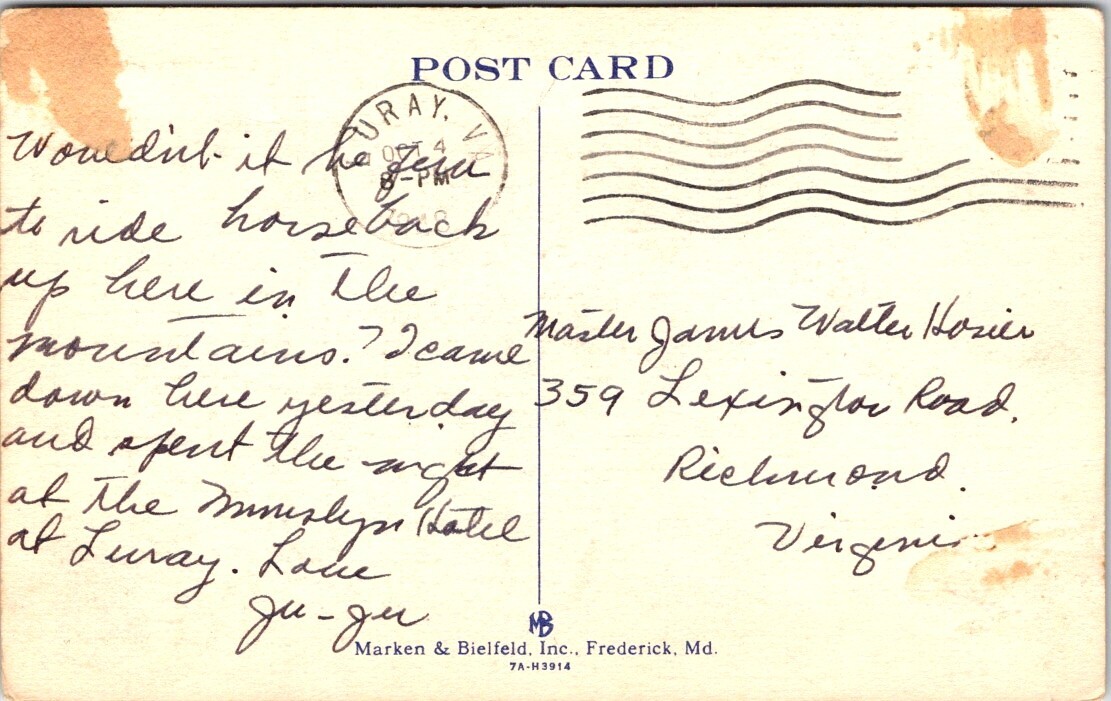 POST CARD
URAY, VA
OCT 4
8-PM
Wouldn't it be fun
to ride horseback
up here in the
mountains? I came
down here yesterday
and spent the night
at the Mimslyn Hotel
at Luray. Love
Ju-Ju
Master James Walter Hosier
359 Lexington Road,
Richmond.
Virginia
MB
Marken & Bielfeld, Inc., Frederick, Md.
7A-H3914